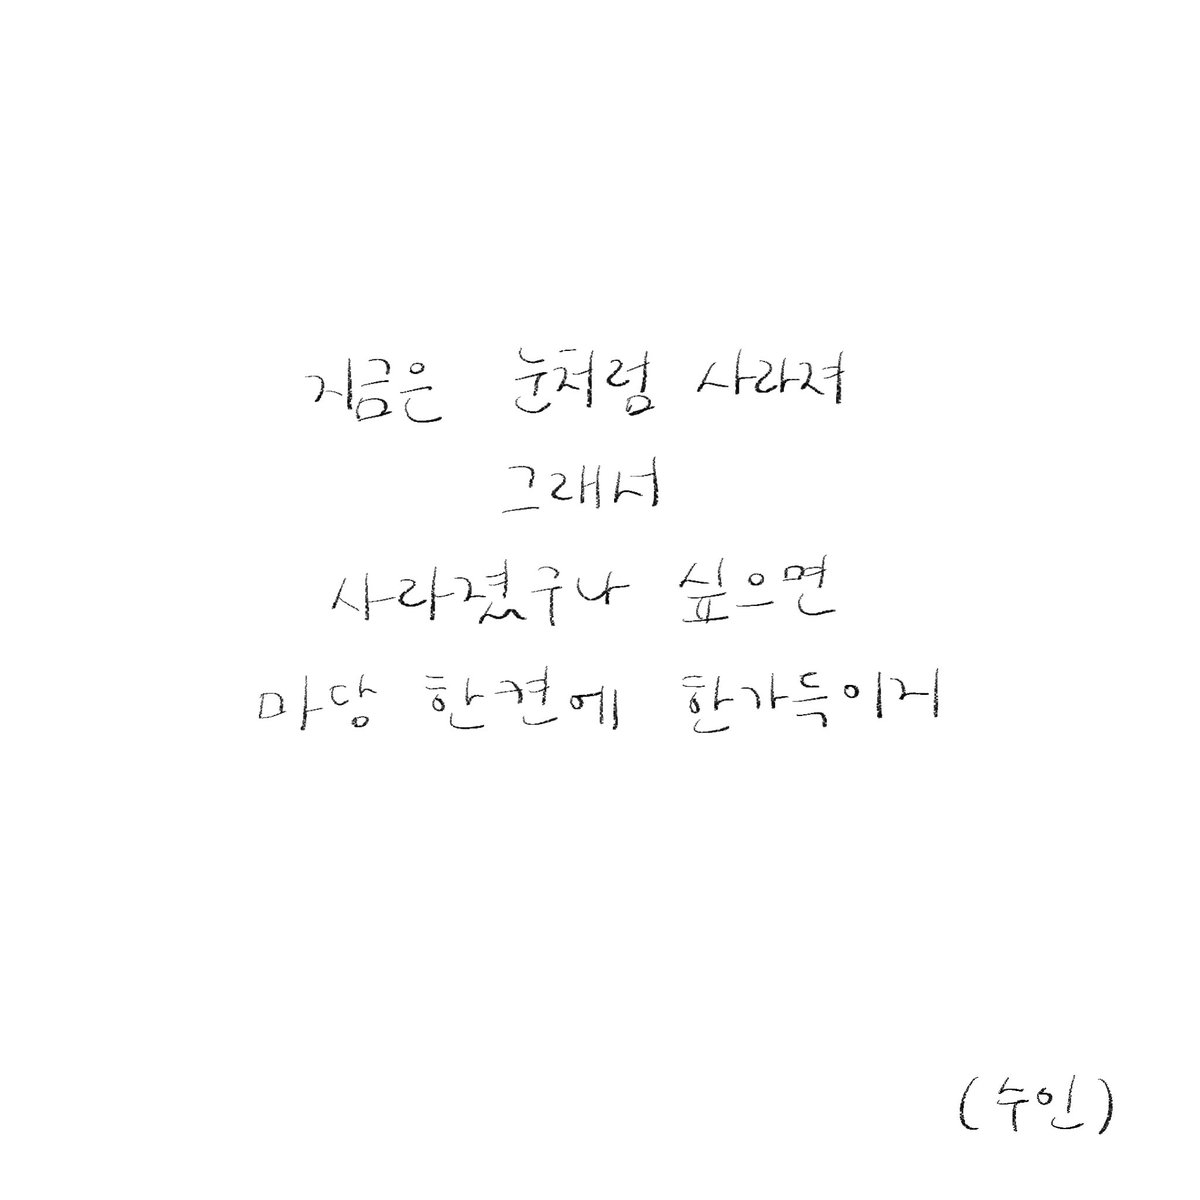 지금은 눈처럼 사라져
그래서
사라졌구나 싶으면
마당 한켠에 한가득이지
(수인)